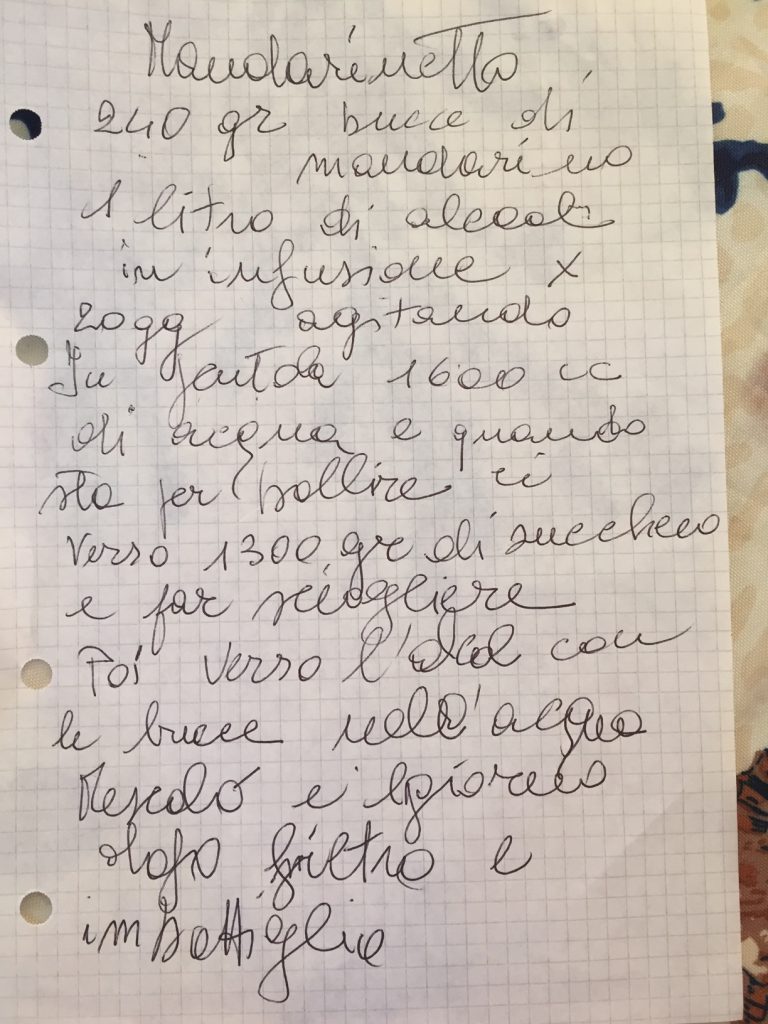 Mandarinetto
240 gr bucce di
mandarino
1 litro di alcool
in infusione x
20gg agitando
In pentola 1600 cc
di acqua e quando
sta per bollire ci
verso 1300 gr di zucchero
e far sciogliere
Poi verso l'alcol con
le bucce nell'acqua
Mescolo e il giorno
dopo filtro e
imbottiglio